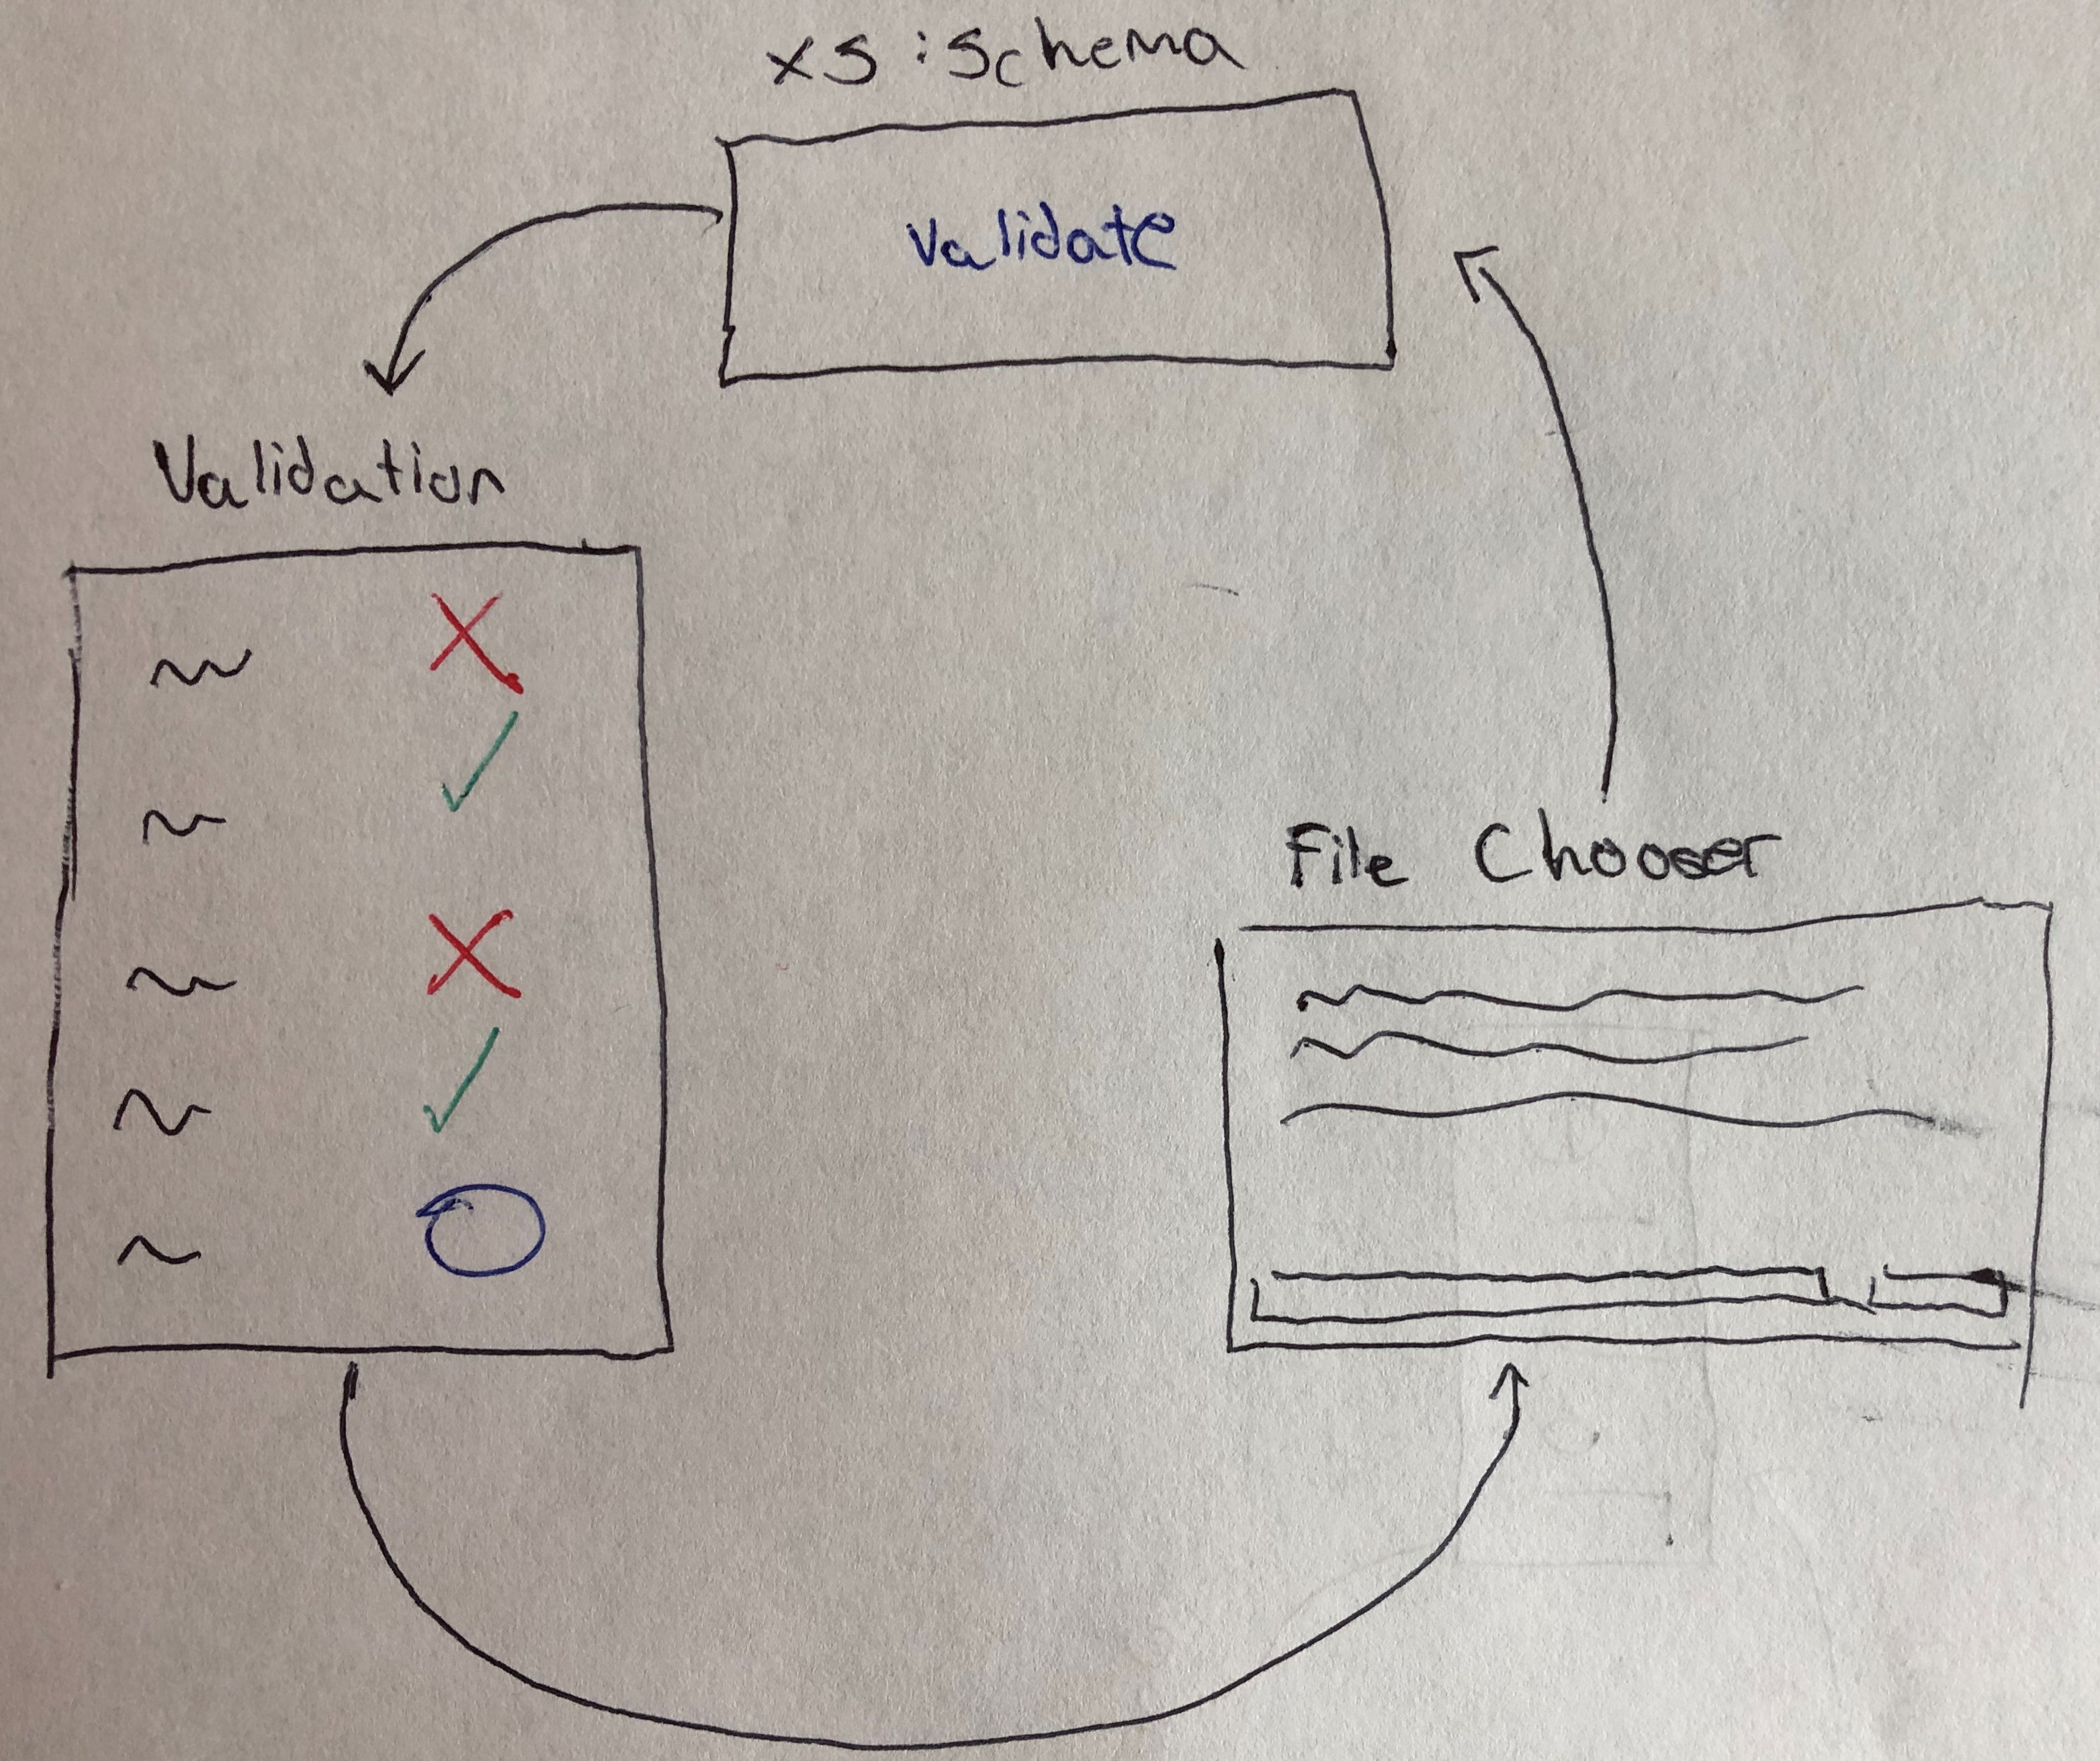 xs:schema
Validate
Validation
File Chooser